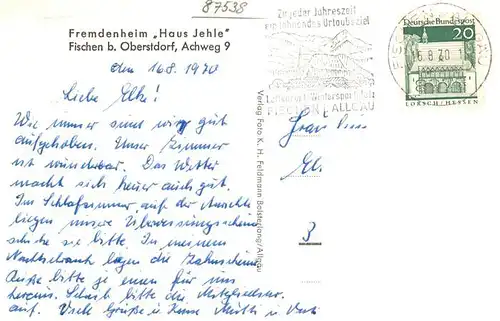 87538
Fremdenheim „Haus Jehle"
Fischen b. Oberstdorf, Achweg 9
den 16.8.1970
Liebe Elke!
Wie immer sind wir gut
aufgehoben. Unser Zimmer
ist wunderbar. Das Wetter
macht sich heuer auch gut.
Im Schlafzimmer, auf der Anrichte
liegen unsere Überweisungsscheine
schicke sie bitte. In meinem
Nachtschrank lagen die Zahnscheine
bitte je einen für uns
heraus. Schreib bitte die Mitgliedsnr.
auf. Viele Grüße u. Küsse Mutti u. Vati
Verlag Foto K. H. Feldmann Bolsterlang/Allgäu
Zu jeder Jahreszeit
ein lohnendes Urlaubsziel
Luftkurort Wintersportplatz
FISCHEN ALLGÄU
16.8.70
Deutsche Bundespost
20
LORSCH/HESSEN
Frau
3